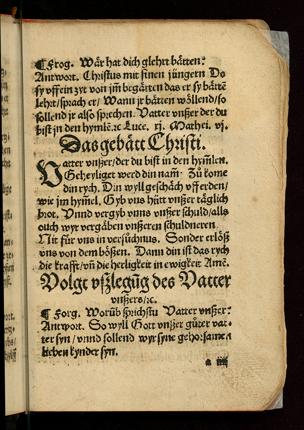 ¶ Frog. Wår hat dich glehrt båtten?
Antwort. Christus mit sinen jüngern Do
sy vff ein zyt von jm̄ begårten das er sy båttē
lehrt/sprach er/ Wann jr båtten wöllend/so
sollend jr also sprechen. Vatter vnßer der du
bist jn den hym̄lē.ꝛc Luce. xj. Mathei. vj.
Das gebått Christi.
Vatter vnßer/der du bist in den hym̄len.
Geheyliget werd din nam̄. Zů kome
din rych. Din wyll geschåch vff erden/
wie jm hym̄el. Gyb vns hütt vnser tåglich
brot. Vnnd vergyb vnns vnser schuld/als
ouch wyr vergåben vnßeren schuldneren.
Nit für vns in versůchnus. Sonder erlöß
vns von dem bößen. Dann din ist das rych
die krafft/vñ die herligkeit in ewigkeit Amē.
Volgt vßlegūg des Vatter
vnßers/ꝛc.
¶ Forg. Worūb sprichstu Vatter vnßer?
Antwort. So wyll Gott vnßer gůter vat-
ter syn/vnnd sollend wyr syne gehorsame
lichen kynder syn.
a iiij